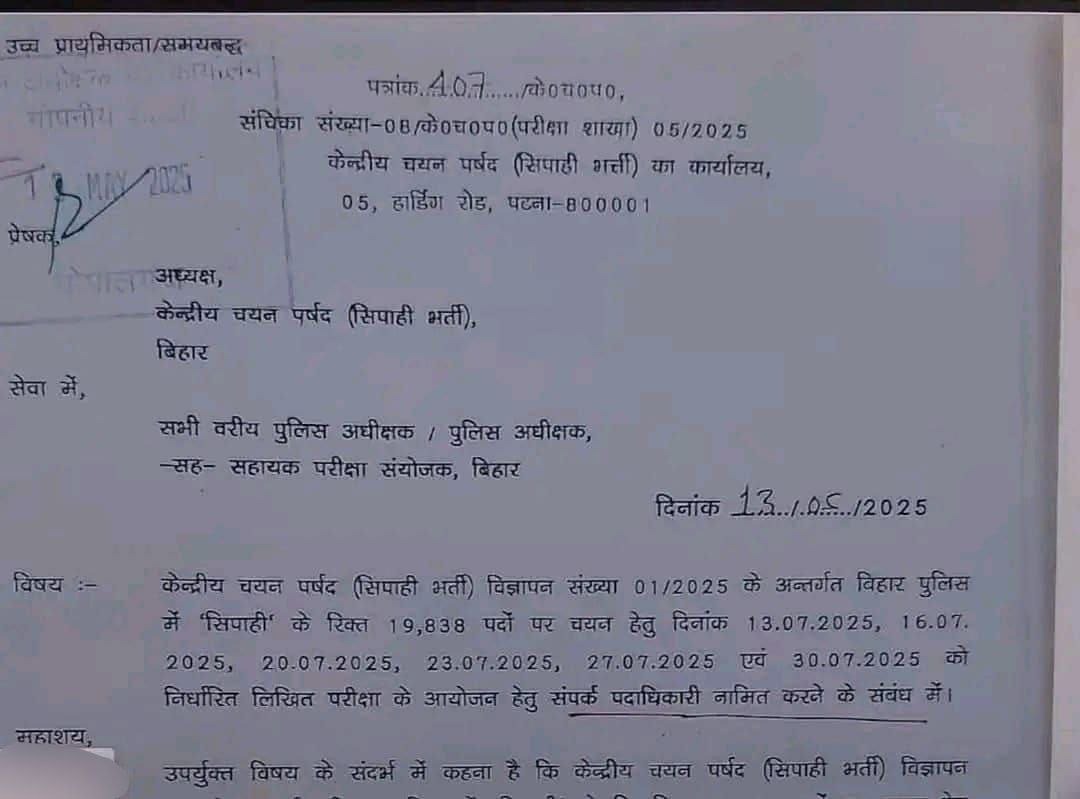 उच्च प्राथमिकता/समयबद्ध
कार्यालय
गोपनीय
MAY 2025
पत्रांक..407....../के०च०प०,
संचिका संख्या-08/के०च०प०(परीक्षा शाखा) 05/2025
केन्द्रीय चयन पर्षद (सिपाही भर्त्ती) का कार्यालय,
05, हार्डिंग रोड, पटना-800001
प्रेषक,
अध्यक्ष,
केन्द्रीय चयन पर्षद (सिपाही भर्ती),
बिहार
सेवा में,
सभी वरीय पुलिस अधीक्षक / पुलिस अधीक्षक,
-सह- सहायक परीक्षा संयोजक, बिहार
दिनांक 13../.05../2025
विषय :- केन्द्रीय चयन पर्षद (सिपाही भर्ती) विज्ञापन संख्या 01/2025 के अन्तर्गत विहार पुलिस
में 'सिपाही' के रिक्त 19,838 पदों पर चयन हेतु दिनांक 13.07.2025, 16.07.
2025, 20.07.2025, 23.07.2025, 27.07.2025 एवं 30.07.2025 को
निर्धारित लिखित परीक्षा के आयोजन हेतु संपर्क पदाधिकारी नामित करने के संबंध में।
महाशय,
उपर्युक्त विषय के संदर्भ में कहना है कि केन्द्रीय चयन पर्षद (सिपाही भर्ती) विज्ञापन